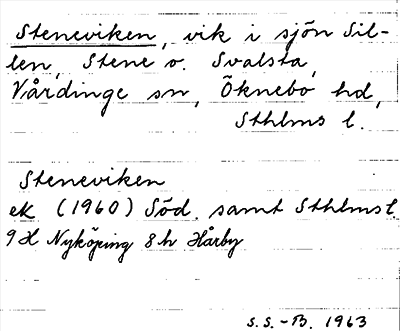 Steneviken, vik i sjön Sil-
len, Stene o. Svalsta,
Vårdinge sn, Öknebo hd,
Sthlms l.
Steneviken
ek (1960) Söd. samt Sthlms l.
9 H Nyköping 8 h Hårby
S.S.-B. 1963